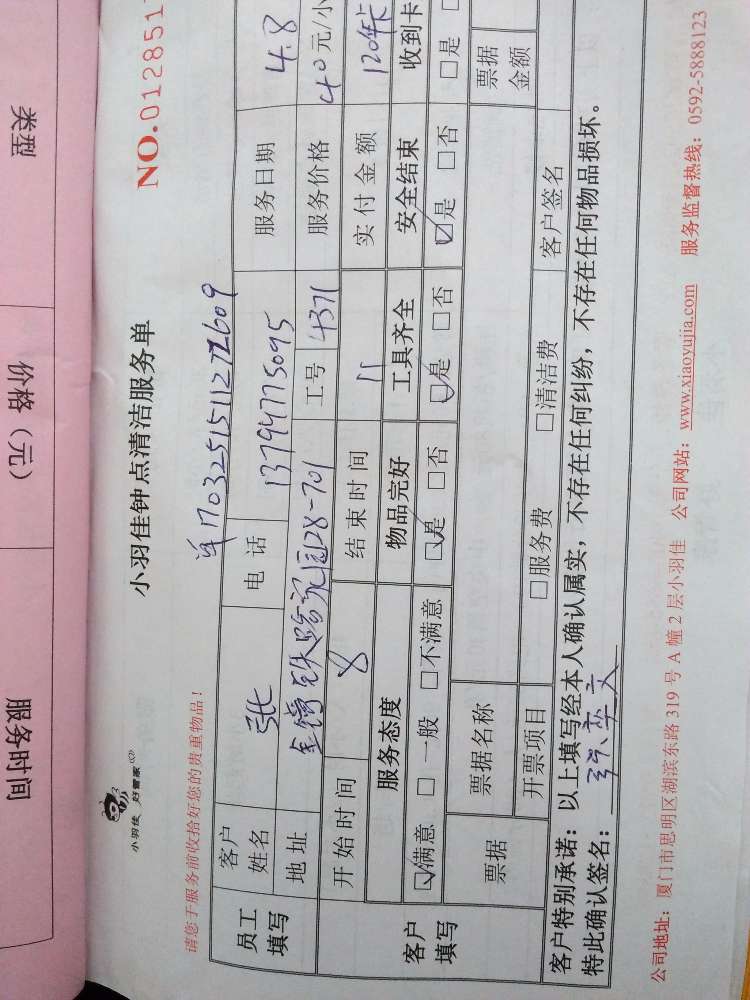 类型
价格（元）
服务时间
小羽佳 好管家
小羽佳钟点清洁服务单
NO.012851
请您于服务前收拾好您的贵重物品！
单170325151127
员工填写
客户姓名 张 电话 13794775095 服务日期 4.8
地址 铁路家园28-701 工号 4371 服务价格 40元/小
开始时间 8 结束时间 11 实付金额 120年卡
客户填写
服务态度 物品完好 工具齐全 安全结束 收到卡
☑满意 □一般 □不满意 ☑是 □否 ☑是 □否 ☑是 □否 □是
票据 票据名称 票据金额
开票项目 □服务费 □清洁费 客户签名
客户特别承诺：以上填写经本人确认属实，不存在任何纠纷，不存在任何物品损坏。
特此确认签名：
公司地址：厦门市思明区湖滨东路 319 号 A 幢 2 层小羽佳 公司网站：www.xiaoyujia.com 服务监督热线：0592-5888123